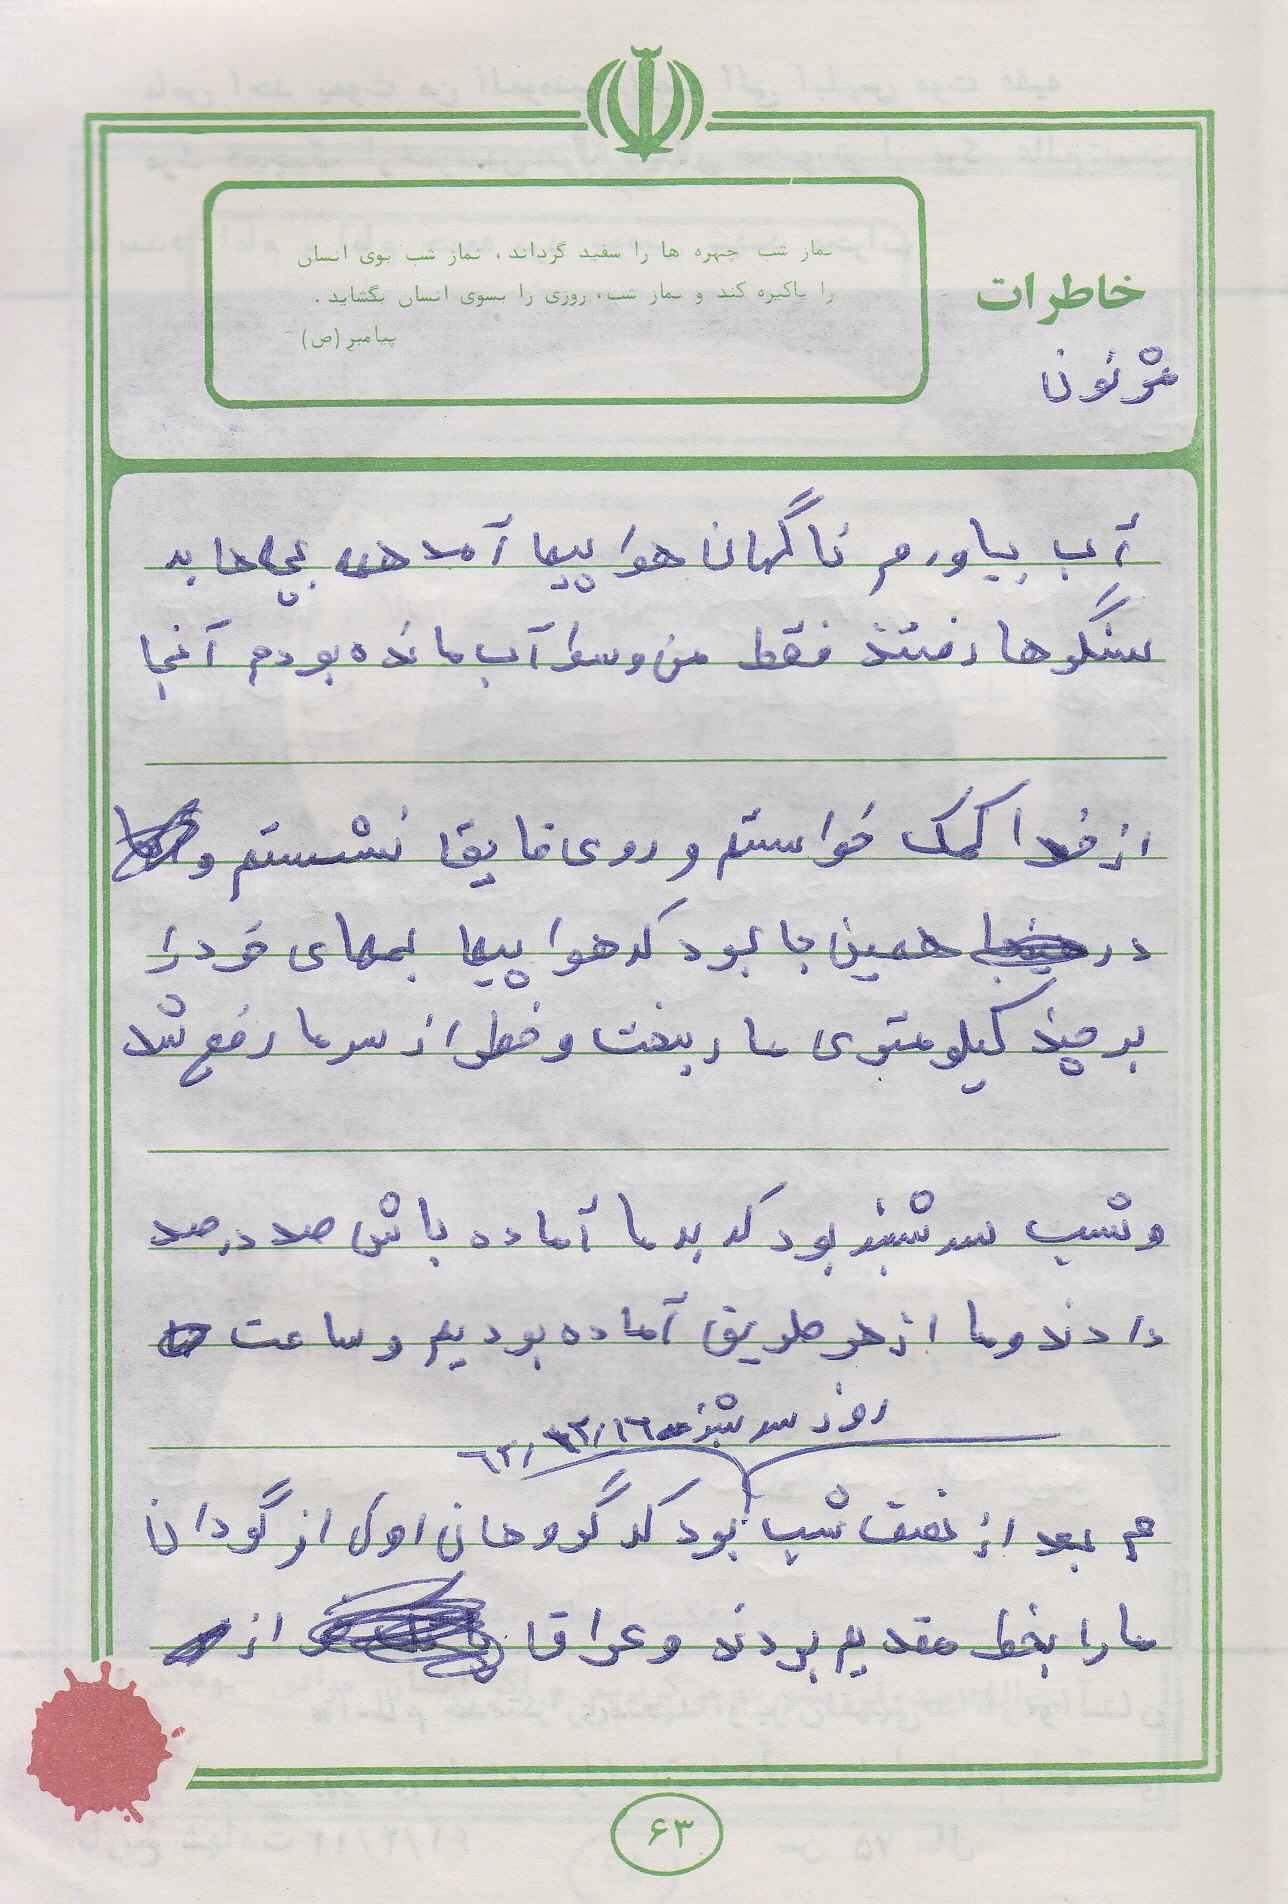 نماز شب چهره ها را سفید گرداند، نماز شب بوی انسان
را پاکیزه کند و نماز شب، روزی را بسوی انسان بگشاید.
پیامبر (ص)
خاطرات
آب بیاورم ناگهان هوا پیما آمد همه بچه ها به
سنگرها رفتند فقط من وسط آب مانده بودم آنجا
از خدا کمک خواستم و روی قایق نشستم و
در همین جا بود که هوا پیما بمبهای خود را
بر چند کیلومتری ما ریخت و خطر از سر ما رفع شد
و شب سه شنبه بود که به ما آماده باش صد در صد
دادند و ما از هر طریق آماده بودیم و ساعت
روز سه شنبه ۶۲/۱۲/۱۶
۳ بعد از نصف شب بود که گروهان اول از گردان
ما را بخط مقدم بردند و عراق از
۶۳